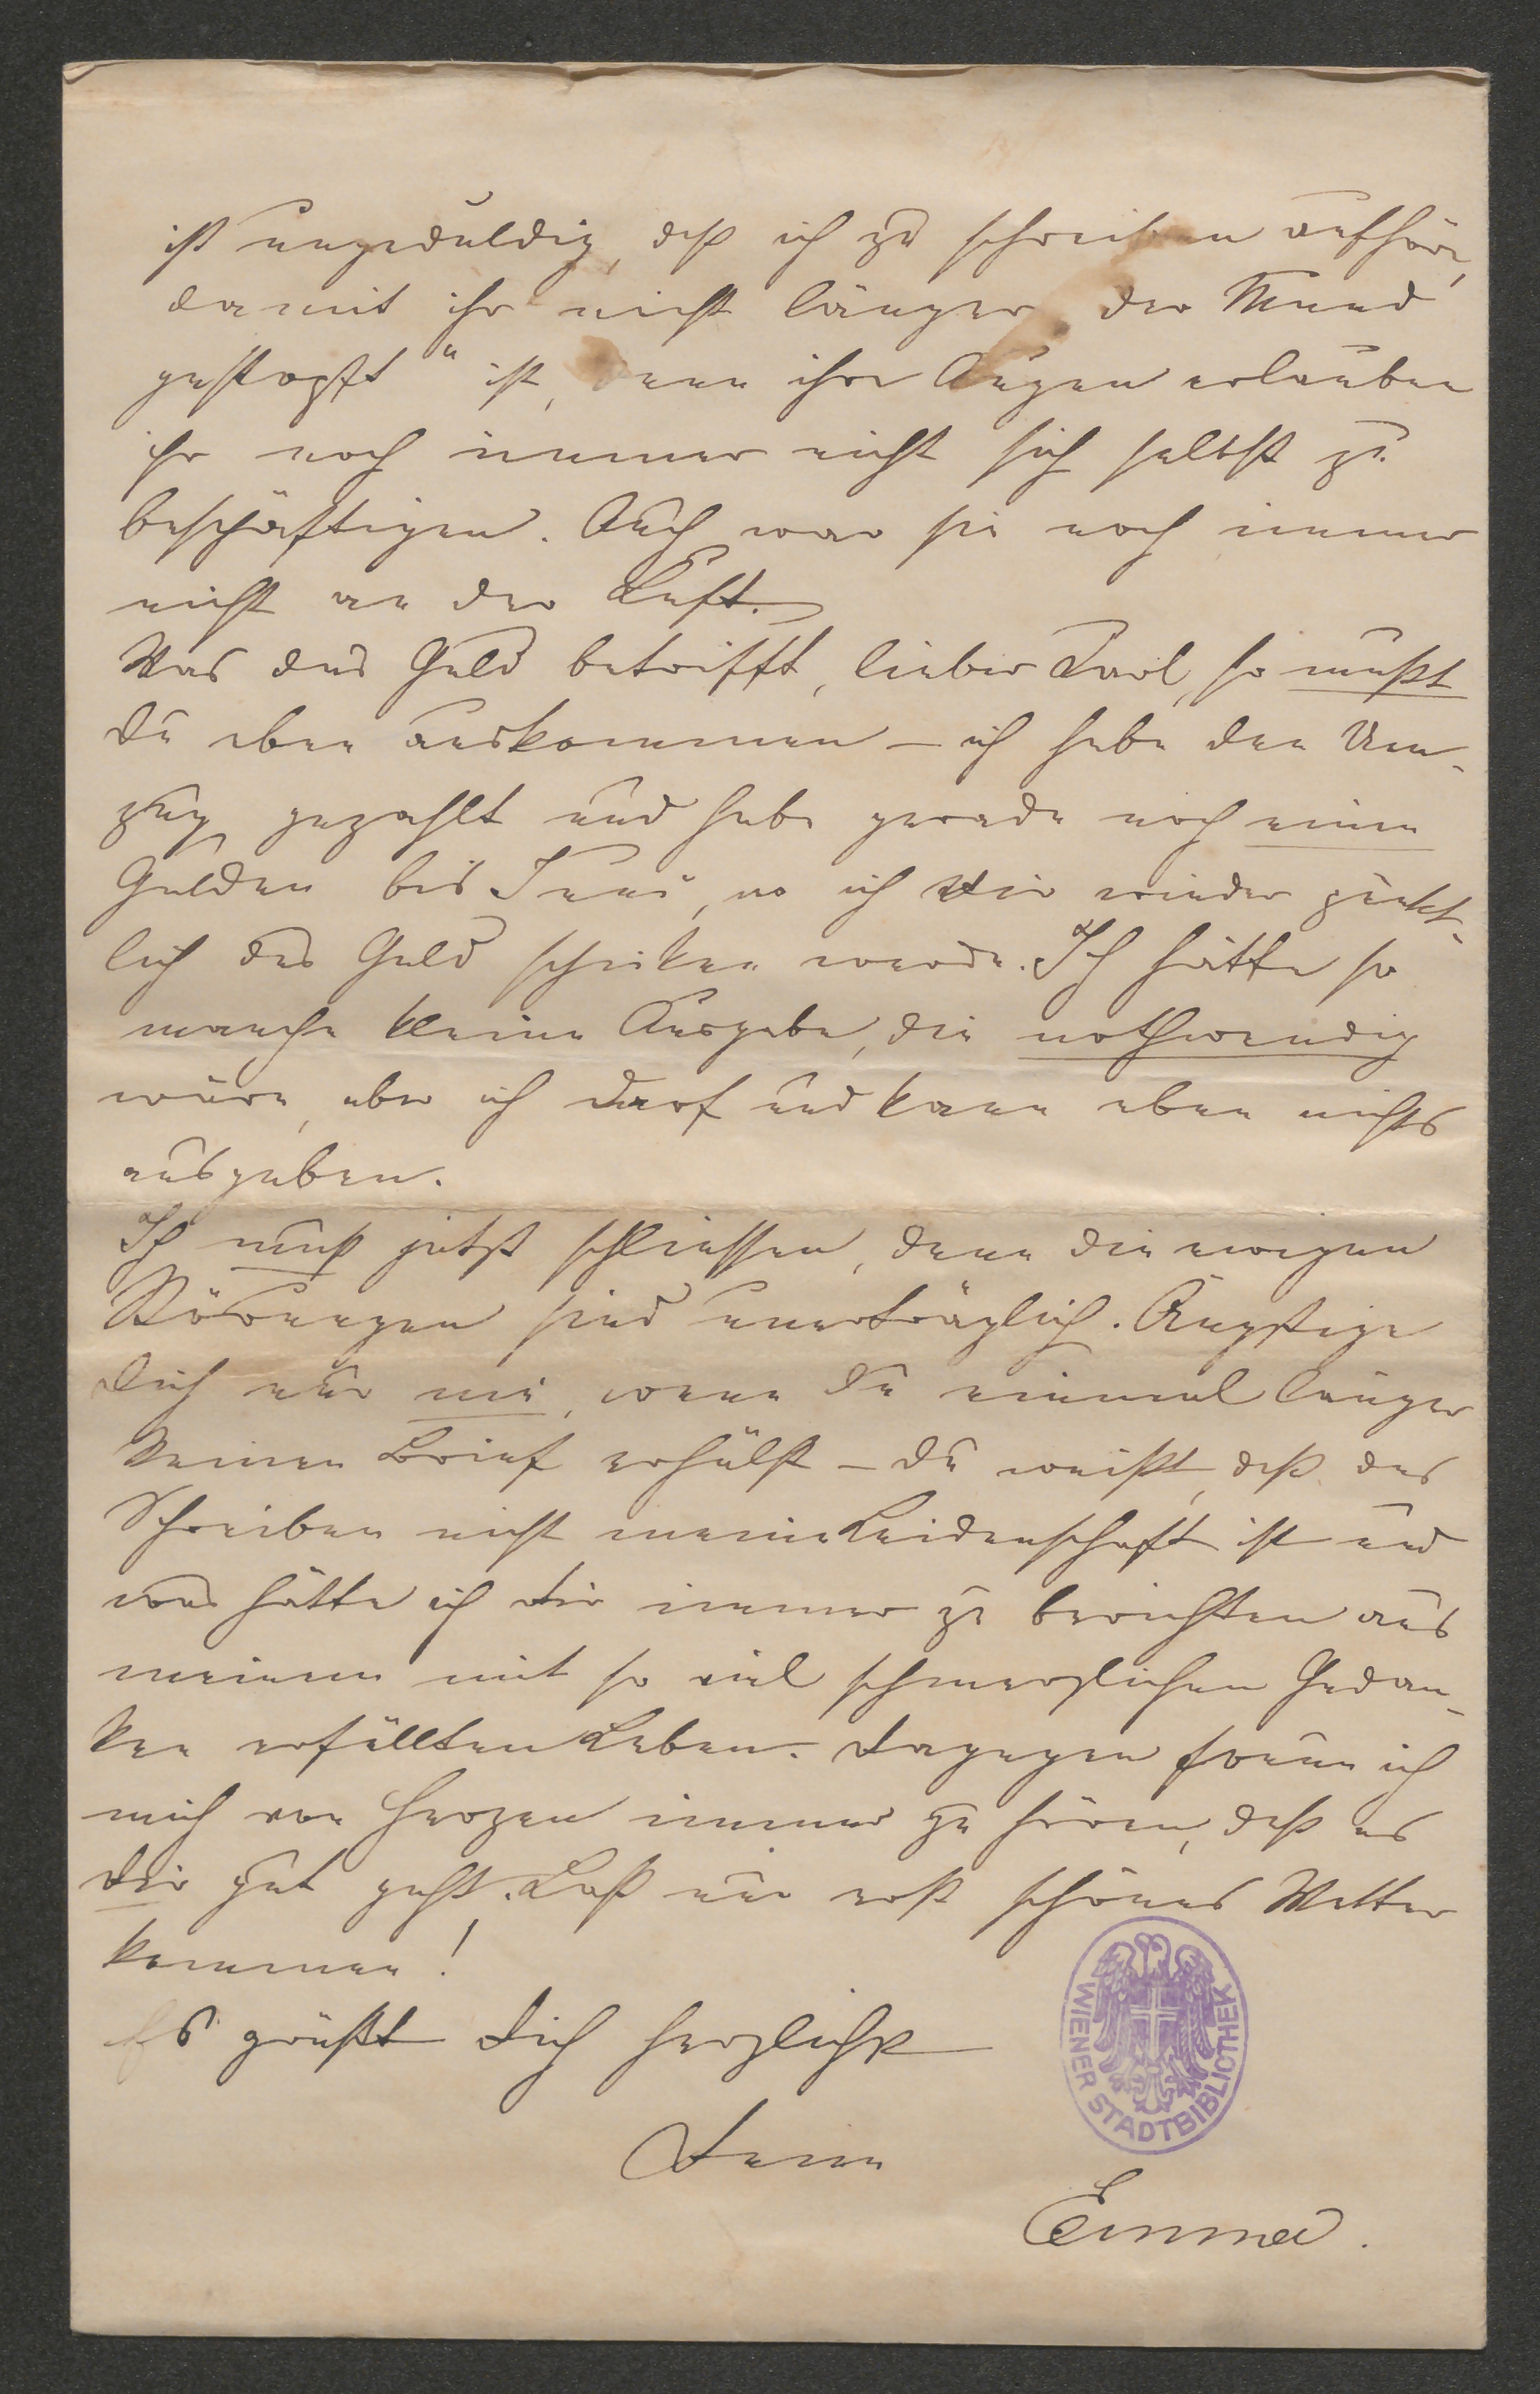 ist ungeduldig, daß ich zu schreiben aufhöre,
damit ihr nicht länger „der Mund
gestopft" ist, denn ihre Augen erlauben
ihr noch immer nicht sich selbst zu
beschäftigen. Auch war sie noch immer
nicht an der Luft.
Was das Geld betrifft, lieber Carl, so mußt
Du eben auskommen – ich habe den Um-
zug gezahlt und habe gerade noch einen
Gulden bis Juni, wo ich Dir wieder pünkt-
lich das Geld schicken werde. Ich hätte so
manche kleine Ausgabe, die nothwendig
wäre, aber ich darf und kann eben nichts
ausgeben.
Ich muß jetzt schliessen, denn die ewigen
Störungen sind unerträglich. Ängstige
Dich nur nie, wenn Du einmal länger
keinen Brief erhälst – Du weißt, daß das
Schreiben nicht meine Leidenschaft ist und
was hätte ich Dir immer zu berichten aus
meinem mit so viel schmerzlichen Gedan-
ken erfüllten Leben. Dagegen freue ich
mich von Herzen immer zu hören, daß es
Dir gut geht. Laß nur erst schönes Wetter
kommen!
Es grüßt Dich herzlichst
Deine
Emma.
WIENER STADTBIBLIOTHEK